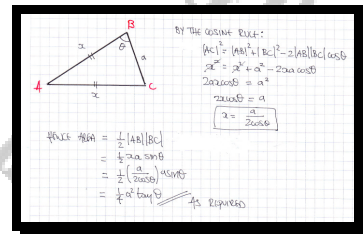 B
BY THE COSINE RULE:
x
θ
a
|AC|² = |AB|² + |BC|² - 2|AB||BC| cosθ
x² = x² + a² - 2xa cosθ
A
C
x
2axcosθ = a²
2xcosθ = a
x = a/2cosθ
HENCE AREA = 1/2 |AB||BC|
= 1/2 xa sinθ
= 1/2 (a/2cosθ) a sinθ
= 1/4 a² tanθ
AS REQUIRED